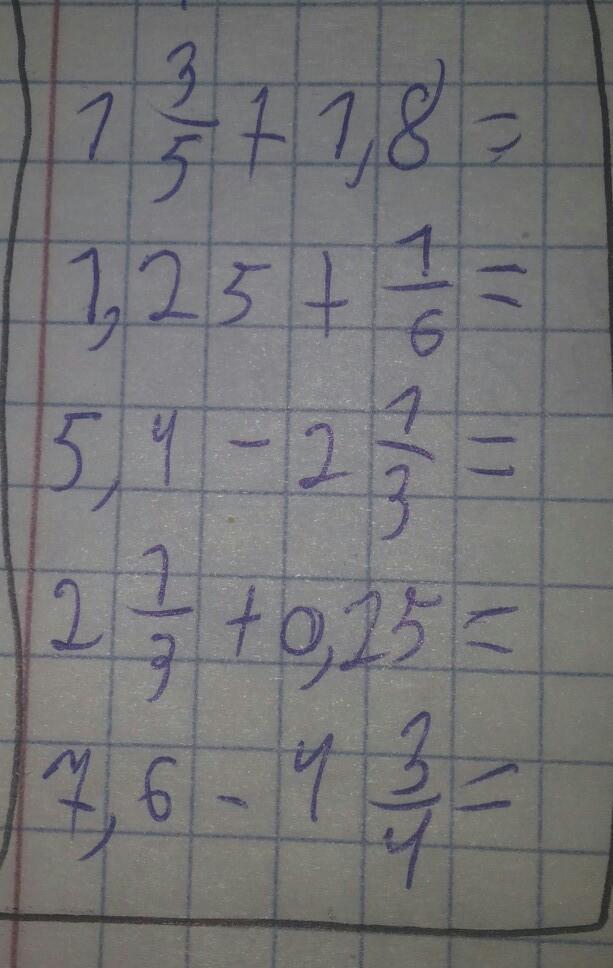 1 3/5 + 1,8 =
1,25 + 1/6 =
5,4 - 2 1/3 =
2 1/3 + 0,25 =
7,6 - 4 3/4 =